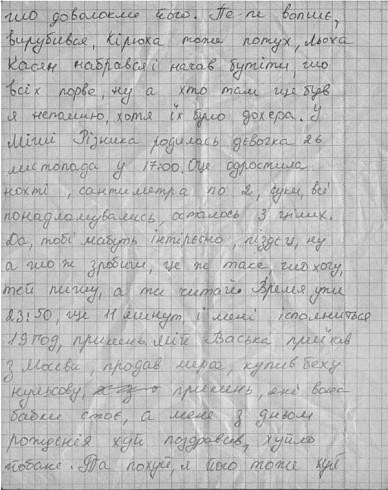 шо доволокли його. Пе-пе вопше,
вирубився, Кірюха тоже потух, Льоха
Касян набрався і начав бутіти, шо
всіх порве, ну а хто там ще був
я непомню, хотя їх було дохера. У
Міши Різника родилась дєвочка 26
листопада у 17:00. Оце одростила
нохті, сантиметра по 2, суки, всі
понадломувались, осталось 3 цілих.
Да, тобі мабуть інтірєсно, піздєц, ну
а шо ж зробиш, це же таке, шо хочу,
теє пишу, а ти читай. Время уже
23:50, ще 11 минут, і мені ісполниться
19 год, прикинь. Мій Васька приїхав
з Москви, продав мерса, купив беху
нульову, прикинь, яні вона
бабки стоє, а мене з дньом
рождєнія хуй поздравів, хуйло
йобане. Та похуй, я його тоже хуй